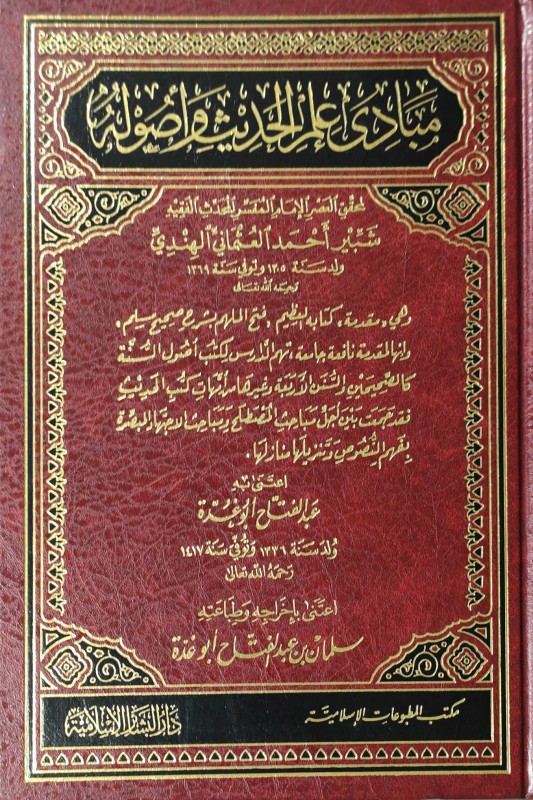 مبادئ علم الحديث وأصوله
لمحقق العصر الإمام المفسر المحدث الفقيه
شبير أحمد العثماني الهندي
ولد سنة ١٣٠٥ وتوفي سنة ١٣٦٩
رحمه الله تعالى
وهي «مقدمة» كتابه العظيم «فتح الملهم بشرح صحيح مسلم»
وإنها لمقدمة نافعة جامعة تهم الدارس لكتب أصول السنة
كالصحيحين والسنن الأربعة وغيرها من أمهات كتب الحديث
فقد جمعت بين أجل مباحث المصطلح ومباحث الاجتهاد المبصرة
بفهم النصوص وتنزيلها منازلها.
اعتنى به
عبد الفتاح أبو غدة
ولد سنة ١٣٣٦ وتوفي سنة ١٤١٧
رحمه الله تعالى
اعتنى بإخراجه وطباعته
سلمان بن عبد الفتاح أبو غدة
مكتب المطبوعات الإسلامية
دار البشائر الإسلامية